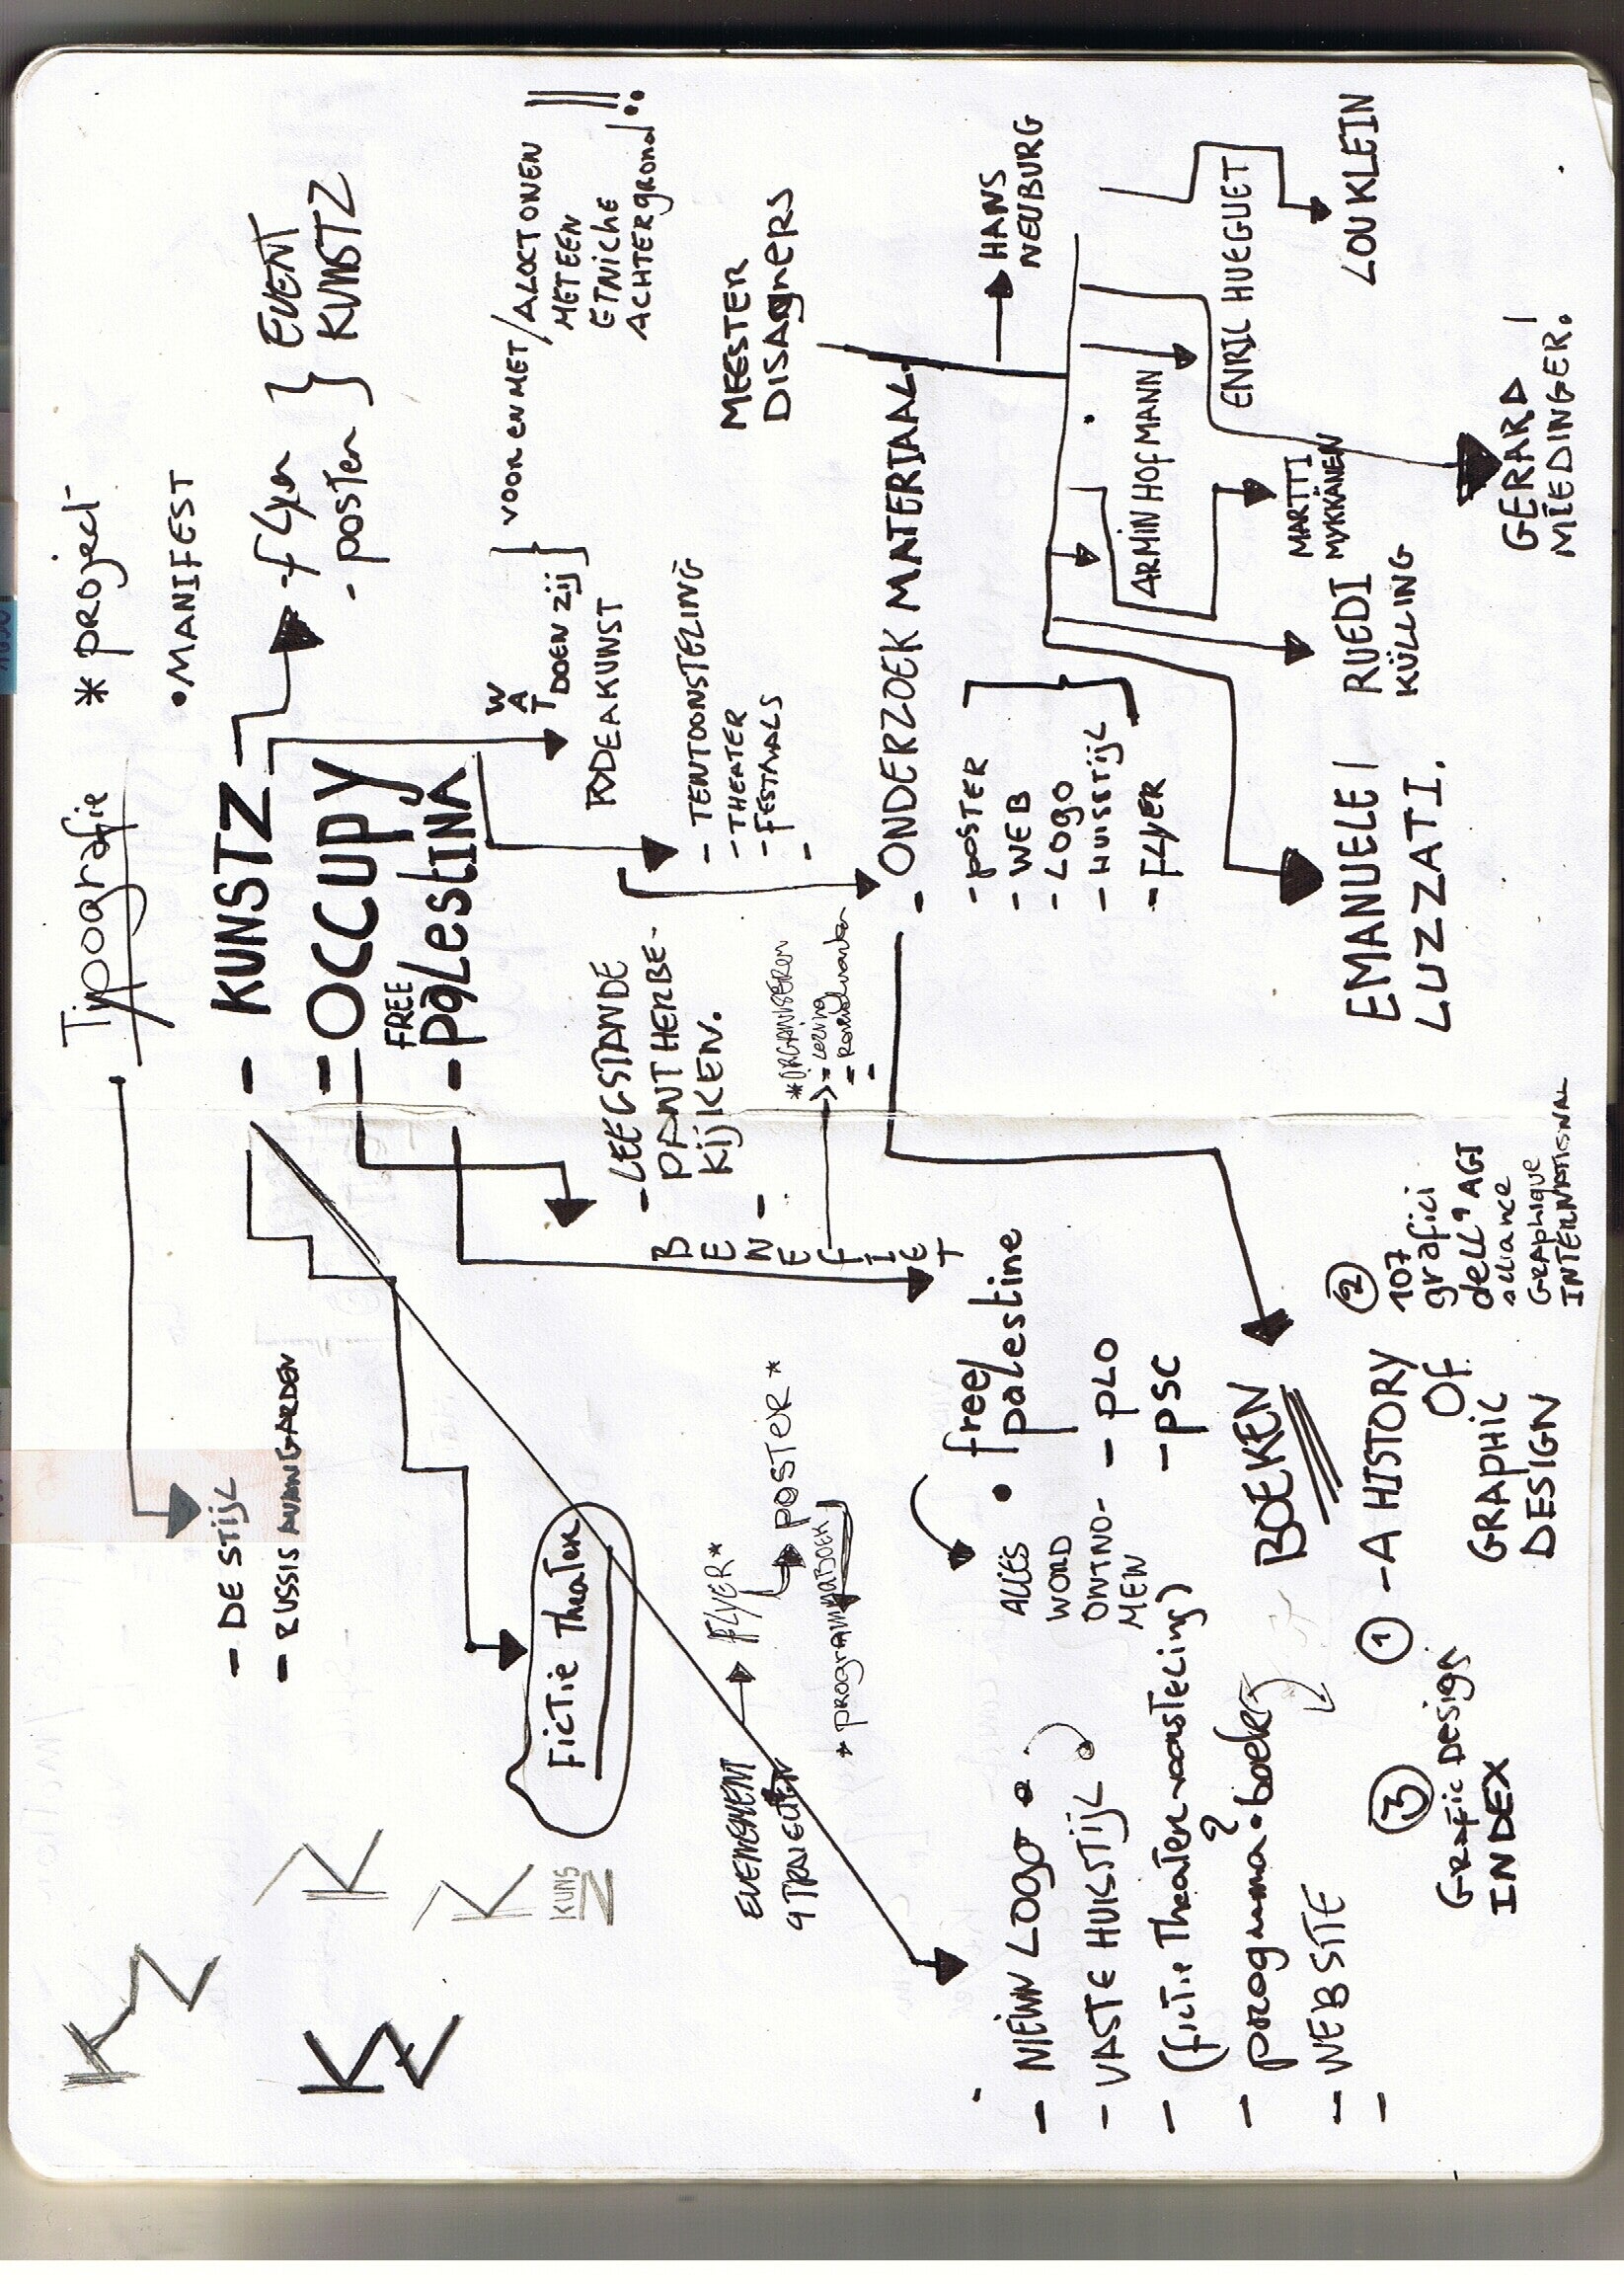 Typografie
* project
• MANIFEST
- DE STIJL
- RUSSIS AVANGARDEN
- KUNSTZ
- flyer
- poster
EVENT
KUNSTZ
- OCCUPY
FREE
- palestINA
WAT
DOEN ZIJ
RODEAKUNST
VOOR EN MET / ALOCTONEN
MET EEN
ETNICHE
ACHTERGROND!!
- TENTOONSTELING
- THEATER
- FESTIVALS
-
- LEEGSTANDE
PANT HERBE-
KIJKEN.
-
BENEFIET
*ORGANISEREN
= Lezing
=
-
KZ
KZ
K
K
KUNS
Z
FICTIE THEATER
EVENEMENT
STRAIGHTEN
FLYER*
POSTER*
* PROGRAMMABOEK
MEESTER
DISAGNERS
- ONDERZOEK MATERIAAL
- POSTER
- WEB
- LOGO
- HUISSTIJL
- FLYER
HANS
NEUBURG
ARMIN HOFMANN
ENRIL HUEGUET
LOU KLEIN
MARTTI
MYKKÄNEN
RUEDI
KÜLLING
GERARD
MIEDINGER.
EMANUELE
LUZZATI.
• free/
palestine
ALLES
WORD
ONTNO-
MEN
- PLO
- PSC
- NIEWN LOGO
- VASTE HUISSTIJL
- (fictie Theater voorsteling)
- programma boek?
- WEBSITE
-
BOEKEN
① - A HISTORY
OF
GRAPHIC
DESIGN
②
107
grafici
dell' AGI
alliance
GRAPHIQUE
INTERNATIONAL
③
GRAFIC DESIGN
INDEX